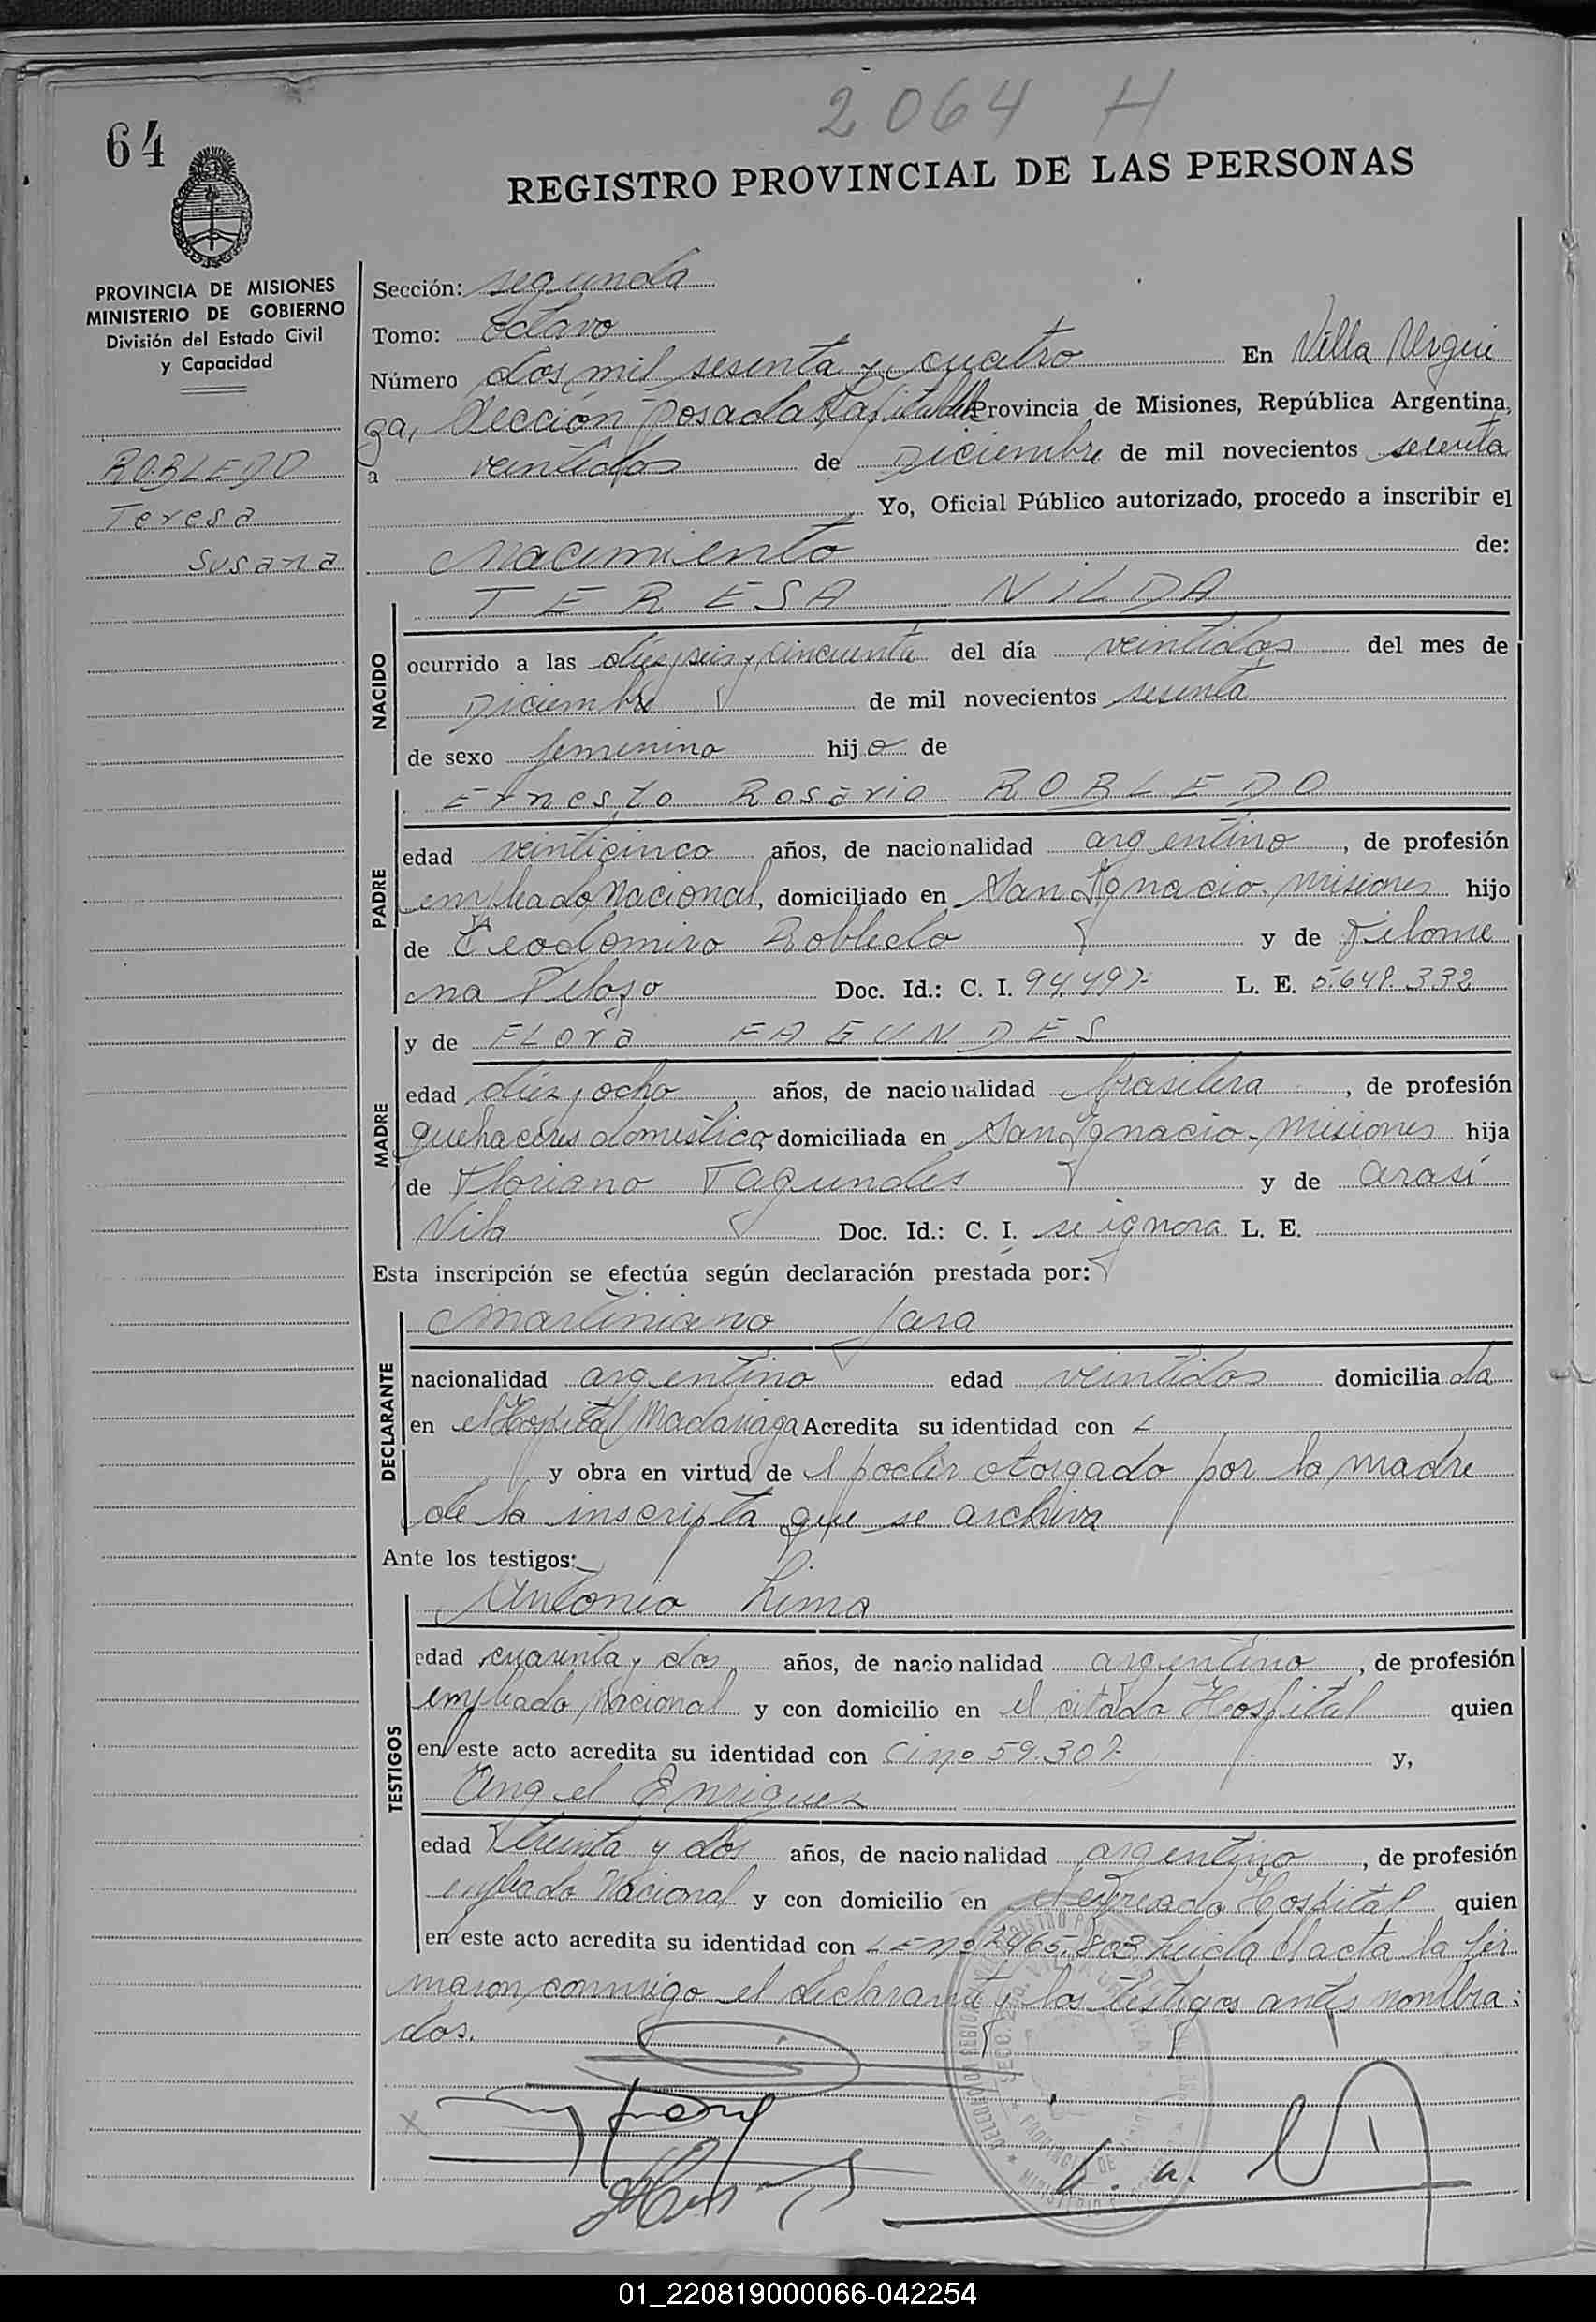 2064 H
64
REGISTRO PROVINCIAL DE LAS PERSONAS
PROVINCIA DE MISIONES
MINISTERIO DE GOBIERNO
División del Estado Civil
y Capacidad
ROBLEDO
Teresa
Susana
Sección: segunda
Tomo: Octavo
Número dos mil sesenta y cuatro En Villa Urqui
za, Sección Posadas Capital Provincia de Misiones, República Argentina,
a veintidos de Diciembre de mil novecientos sesenta
Yo, Oficial Público autorizado, procedo a inscribir el
Nacimiento de:
TERESA NILDA
NACIDO
ocurrido a las diez y seis y cincuenta del día veintidos del mes de
Diciembre de mil novecientos sesenta
de sexo femenino hijo de
Ernesto Rosario ROBLEDO
PADRE
edad veinticinco años, de nacionalidad argentino, de profesión
empleado Nacional, domiciliado en San Ignacio. Misiones hijo
de Teodomiro Robledo y de Filome
na Peloso Doc. Id.: C. I. 94.497 L. E. 5.648.332
y de FLora FAGUNDES
MADRE
edad diez y ocho, años, de nacionalidad brasilera, de profesión
quehaceres domesticos domiciliada en San Ignacio - Misiones hija
de Floriano Fagundes y de Arasí
Vila Doc. Id.: C. I. se ignora L. E.
Esta inscripción se efectúa según declaración prestada por:
Martiniano Jara
DECLARANTE
nacionalidad argentino edad veintidos domiciliada
en el Hospital Madariaga Acredita su identidad con
y obra en virtud de el poder otorgado por la madre
de la inscripta que se archiva
Ante los testigos:
Antonio Lima
TESTIGOS
edad cuarenta y dos años, de nacionalidad argentino, de profesión
empleado Nacional y con domicilio en el citado Hospital quien
en este acto acredita su identidad con CI nº 59.307 y,
Angel Enriquez
edad treinta y dos años, de nacionalidad argentino, de profesión
empleado Nacional y con domicilio en el expresado Hospital quien
en este acto acredita su identidad con LE nº 2465.803 Leida el acta la fir
maron conmigo el declarante y los testigos antes nombra:
dos.
01_220819000066-042254